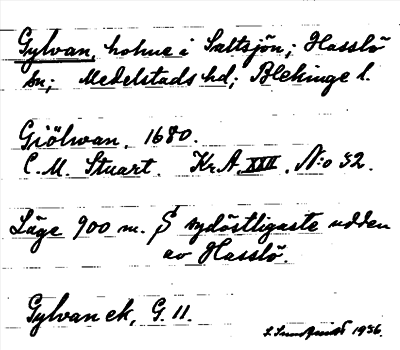 Gylvan, holme i Saltsjön; Hasslö
sn; Medelstads hd; Blekinge l.
Giölwan. 1680.
C.M. Stuart. Kr.A. XXII. N:o 32.
Läge 900 m. S sydöstligaste udden
av Hasslö.
Gylvan ek, G. 11.
1936.